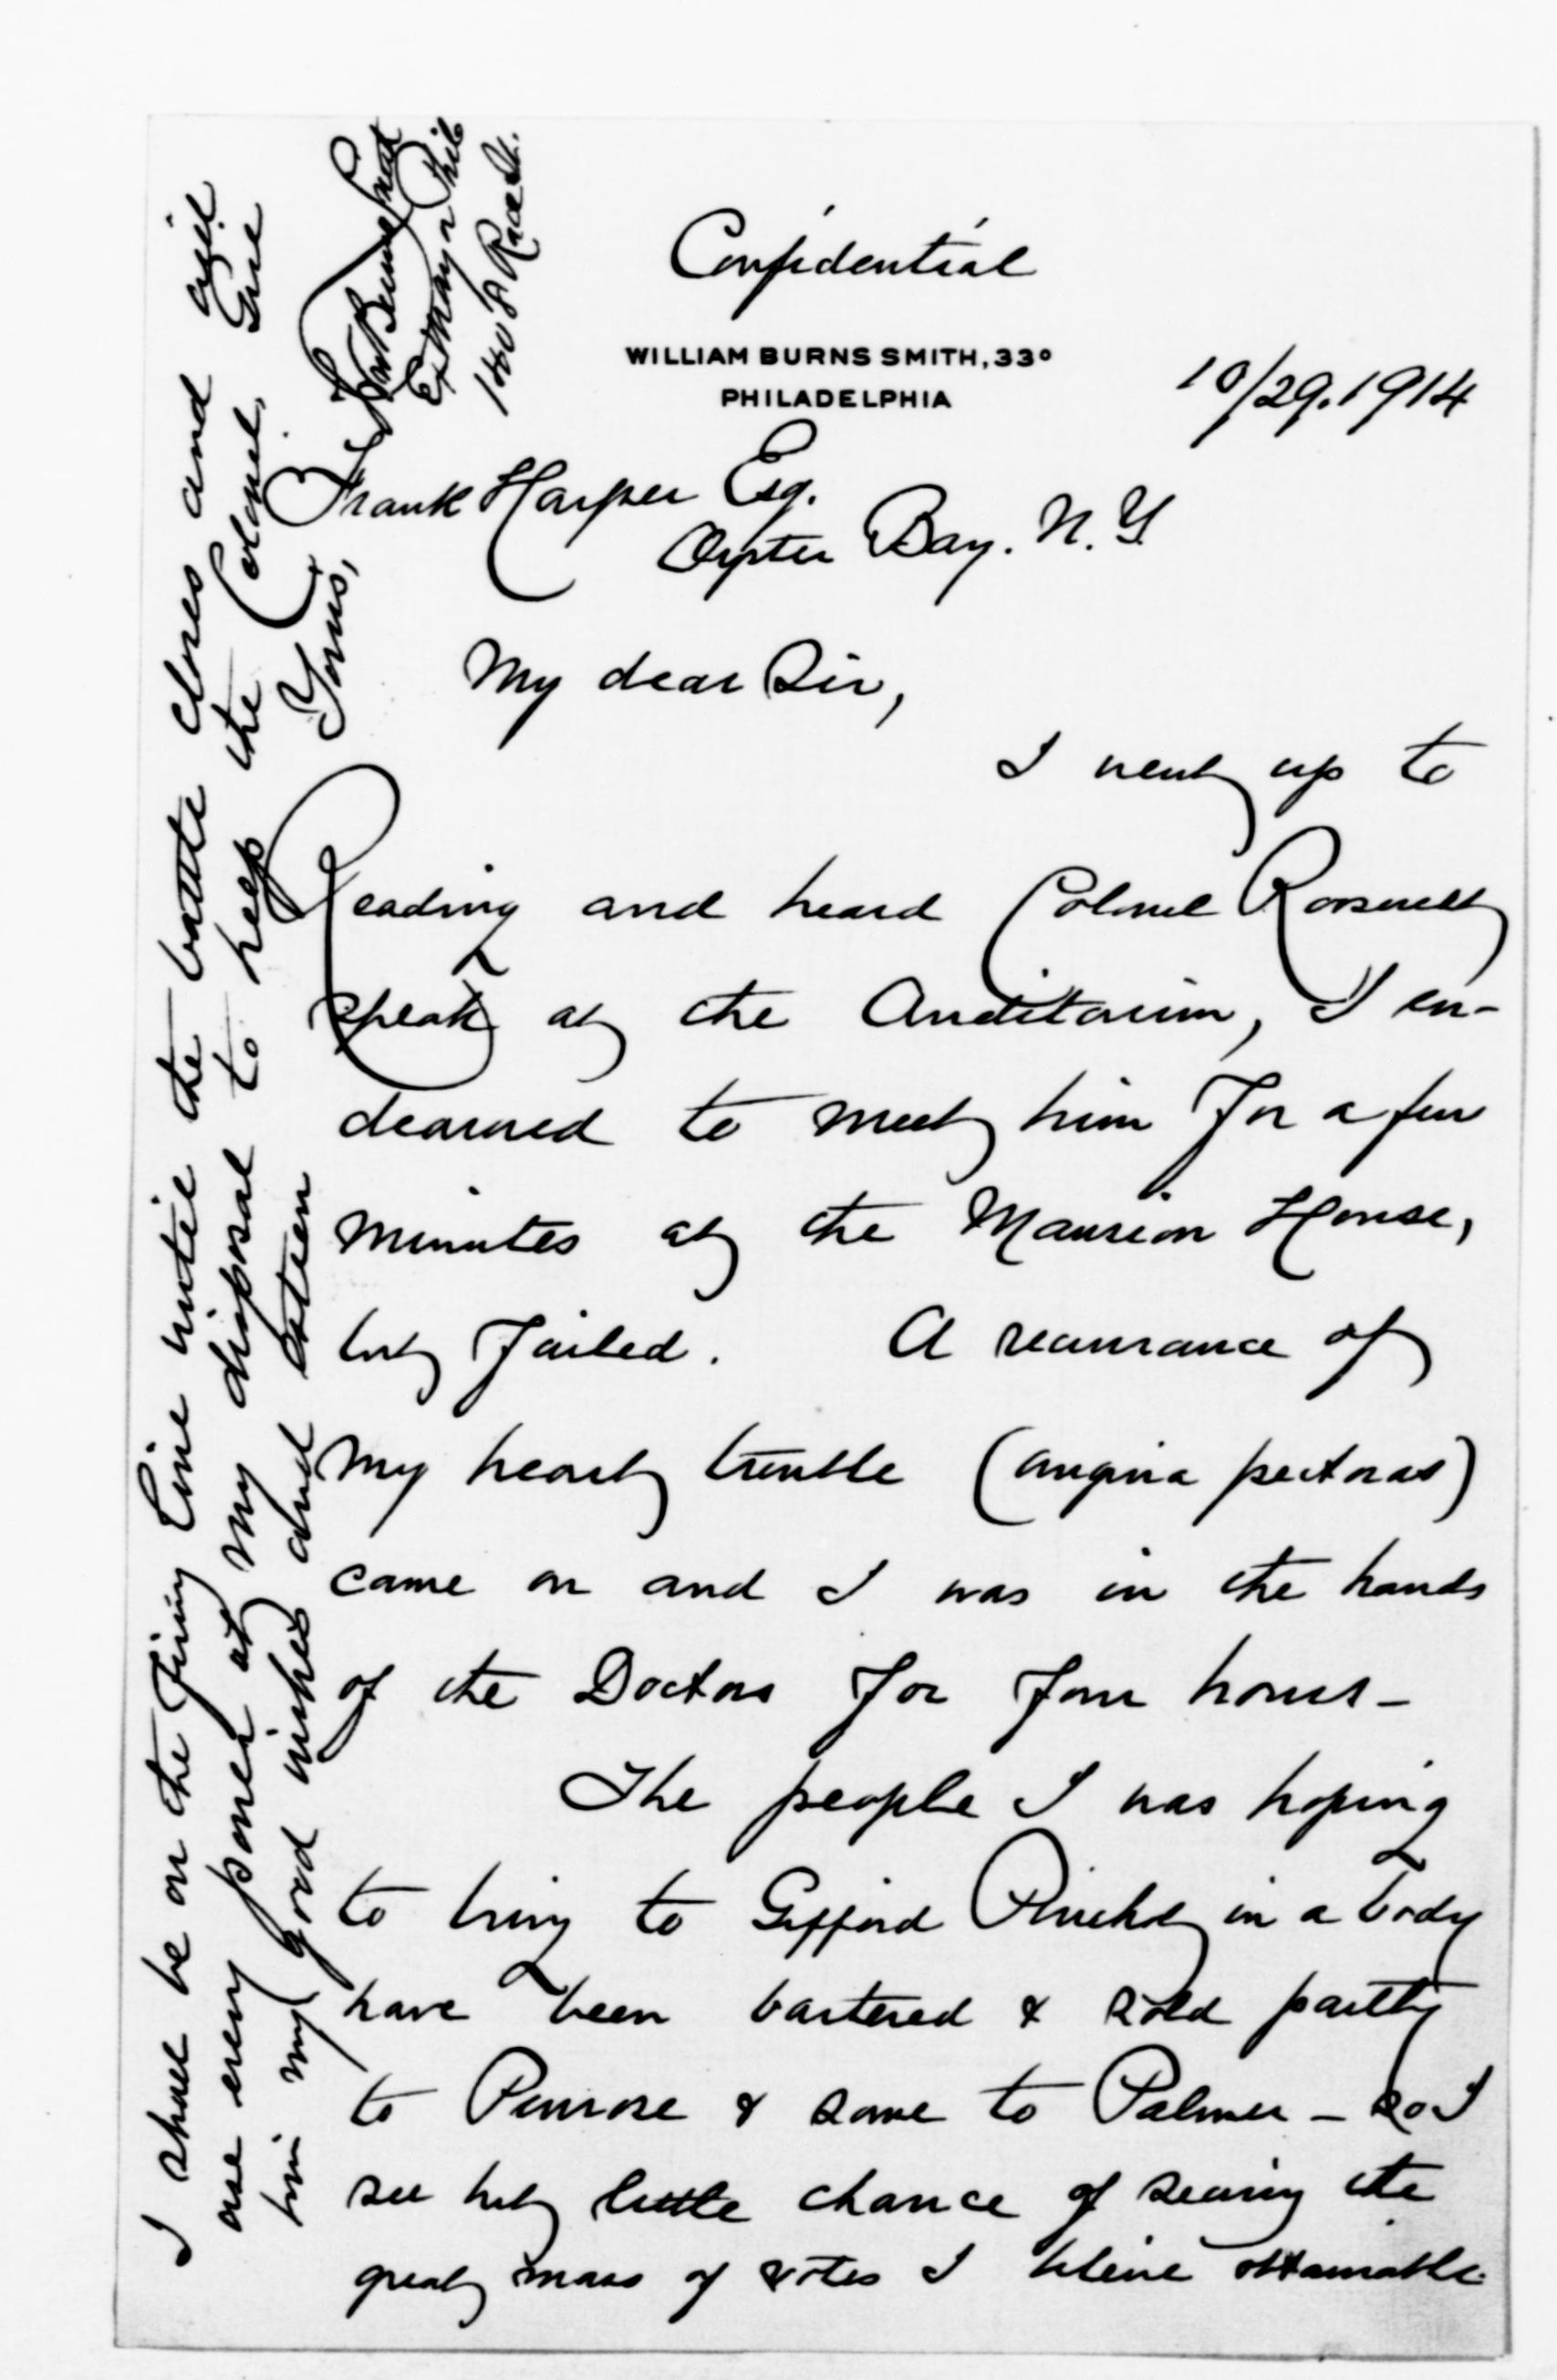 Confidential
WILLIAM BURNS SMITH, 33°
PHILADELPHIA
10/29.1914
Frank Harper Esq.
Oyster Bay. N. Y
My dear Sir,
I went up to
Reading and heard Colonel Roosevelt
speak at the Auditorium, I en-
deavored to meet him for a few
minutes at the Mansion House,
but failed. A recurrance of
my heart trouble (angina pectoras)
came on and I was in the hands
of the Doctors for four hours -
The people I was hoping
to bring to Gifford Pinchot in a body
have been bartered & sold partly
to Penrose & some to Palmer - so I
see but little chance of seeing the
great mass of votes I believe obtainable.
I shall be on the Firing Line until the battle closes and will
use every power at my disposal to keep the Colonel, Give
him my good wishes and esteem
Yours,
Wm Burns Smith
Ex Mayor Phil
1408 Race St.